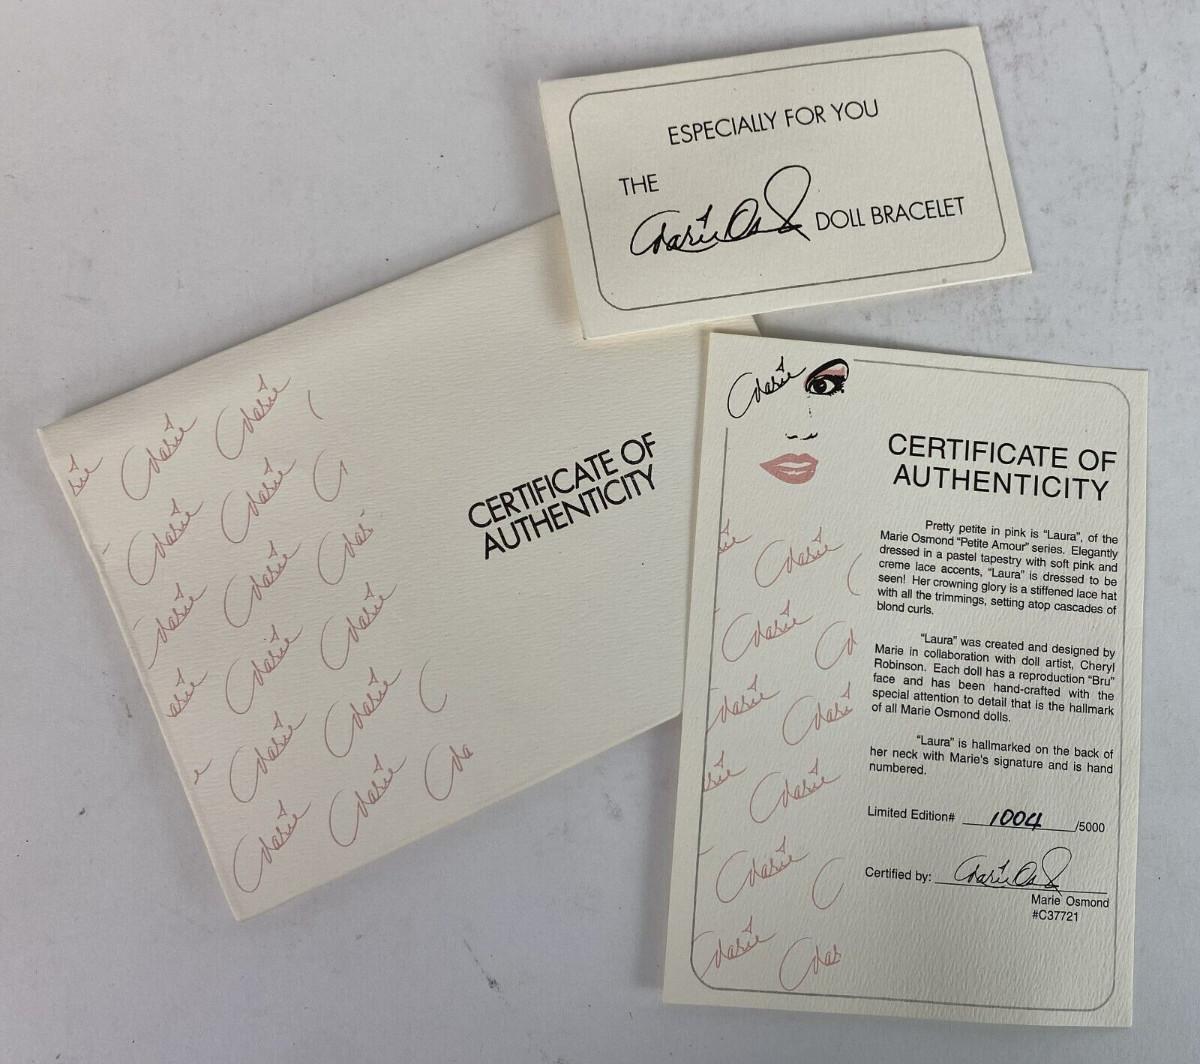 ESPECIALLY FOR YOU
THE
Marie Osmond DOLL BRACELET
CERTIFICATE OF
AUTHENTICITY
Marie
CERTIFICATE OF
AUTHENTICITY
Pretty petite in pink is "Laura", of the
Marie Osmond "Petite Amour" series. Elegantly
dressed in a pastel tapestry with soft pink and
creme lace accents, "Laura" is dressed to be
seen! Her crowning glory is a stiffened lace hat
with all the trimmings, setting atop cascades of
blond curls.
"Laura" was created and designed by
Marie in collaboration with doll artist, Cheryl
Robinson. Each doll has a reproduction "Bru"
face and has been hand-crafted with the
special attention to detail that is the hallmark
of all Marie Osmond dolls.
"Laura" is hallmarked on the back of
her neck with Marie's signature and is hand
numbered.
Limited Edition# 1004 /5000
Certified by: Marie Osmond
Marie Osmond
#C37721